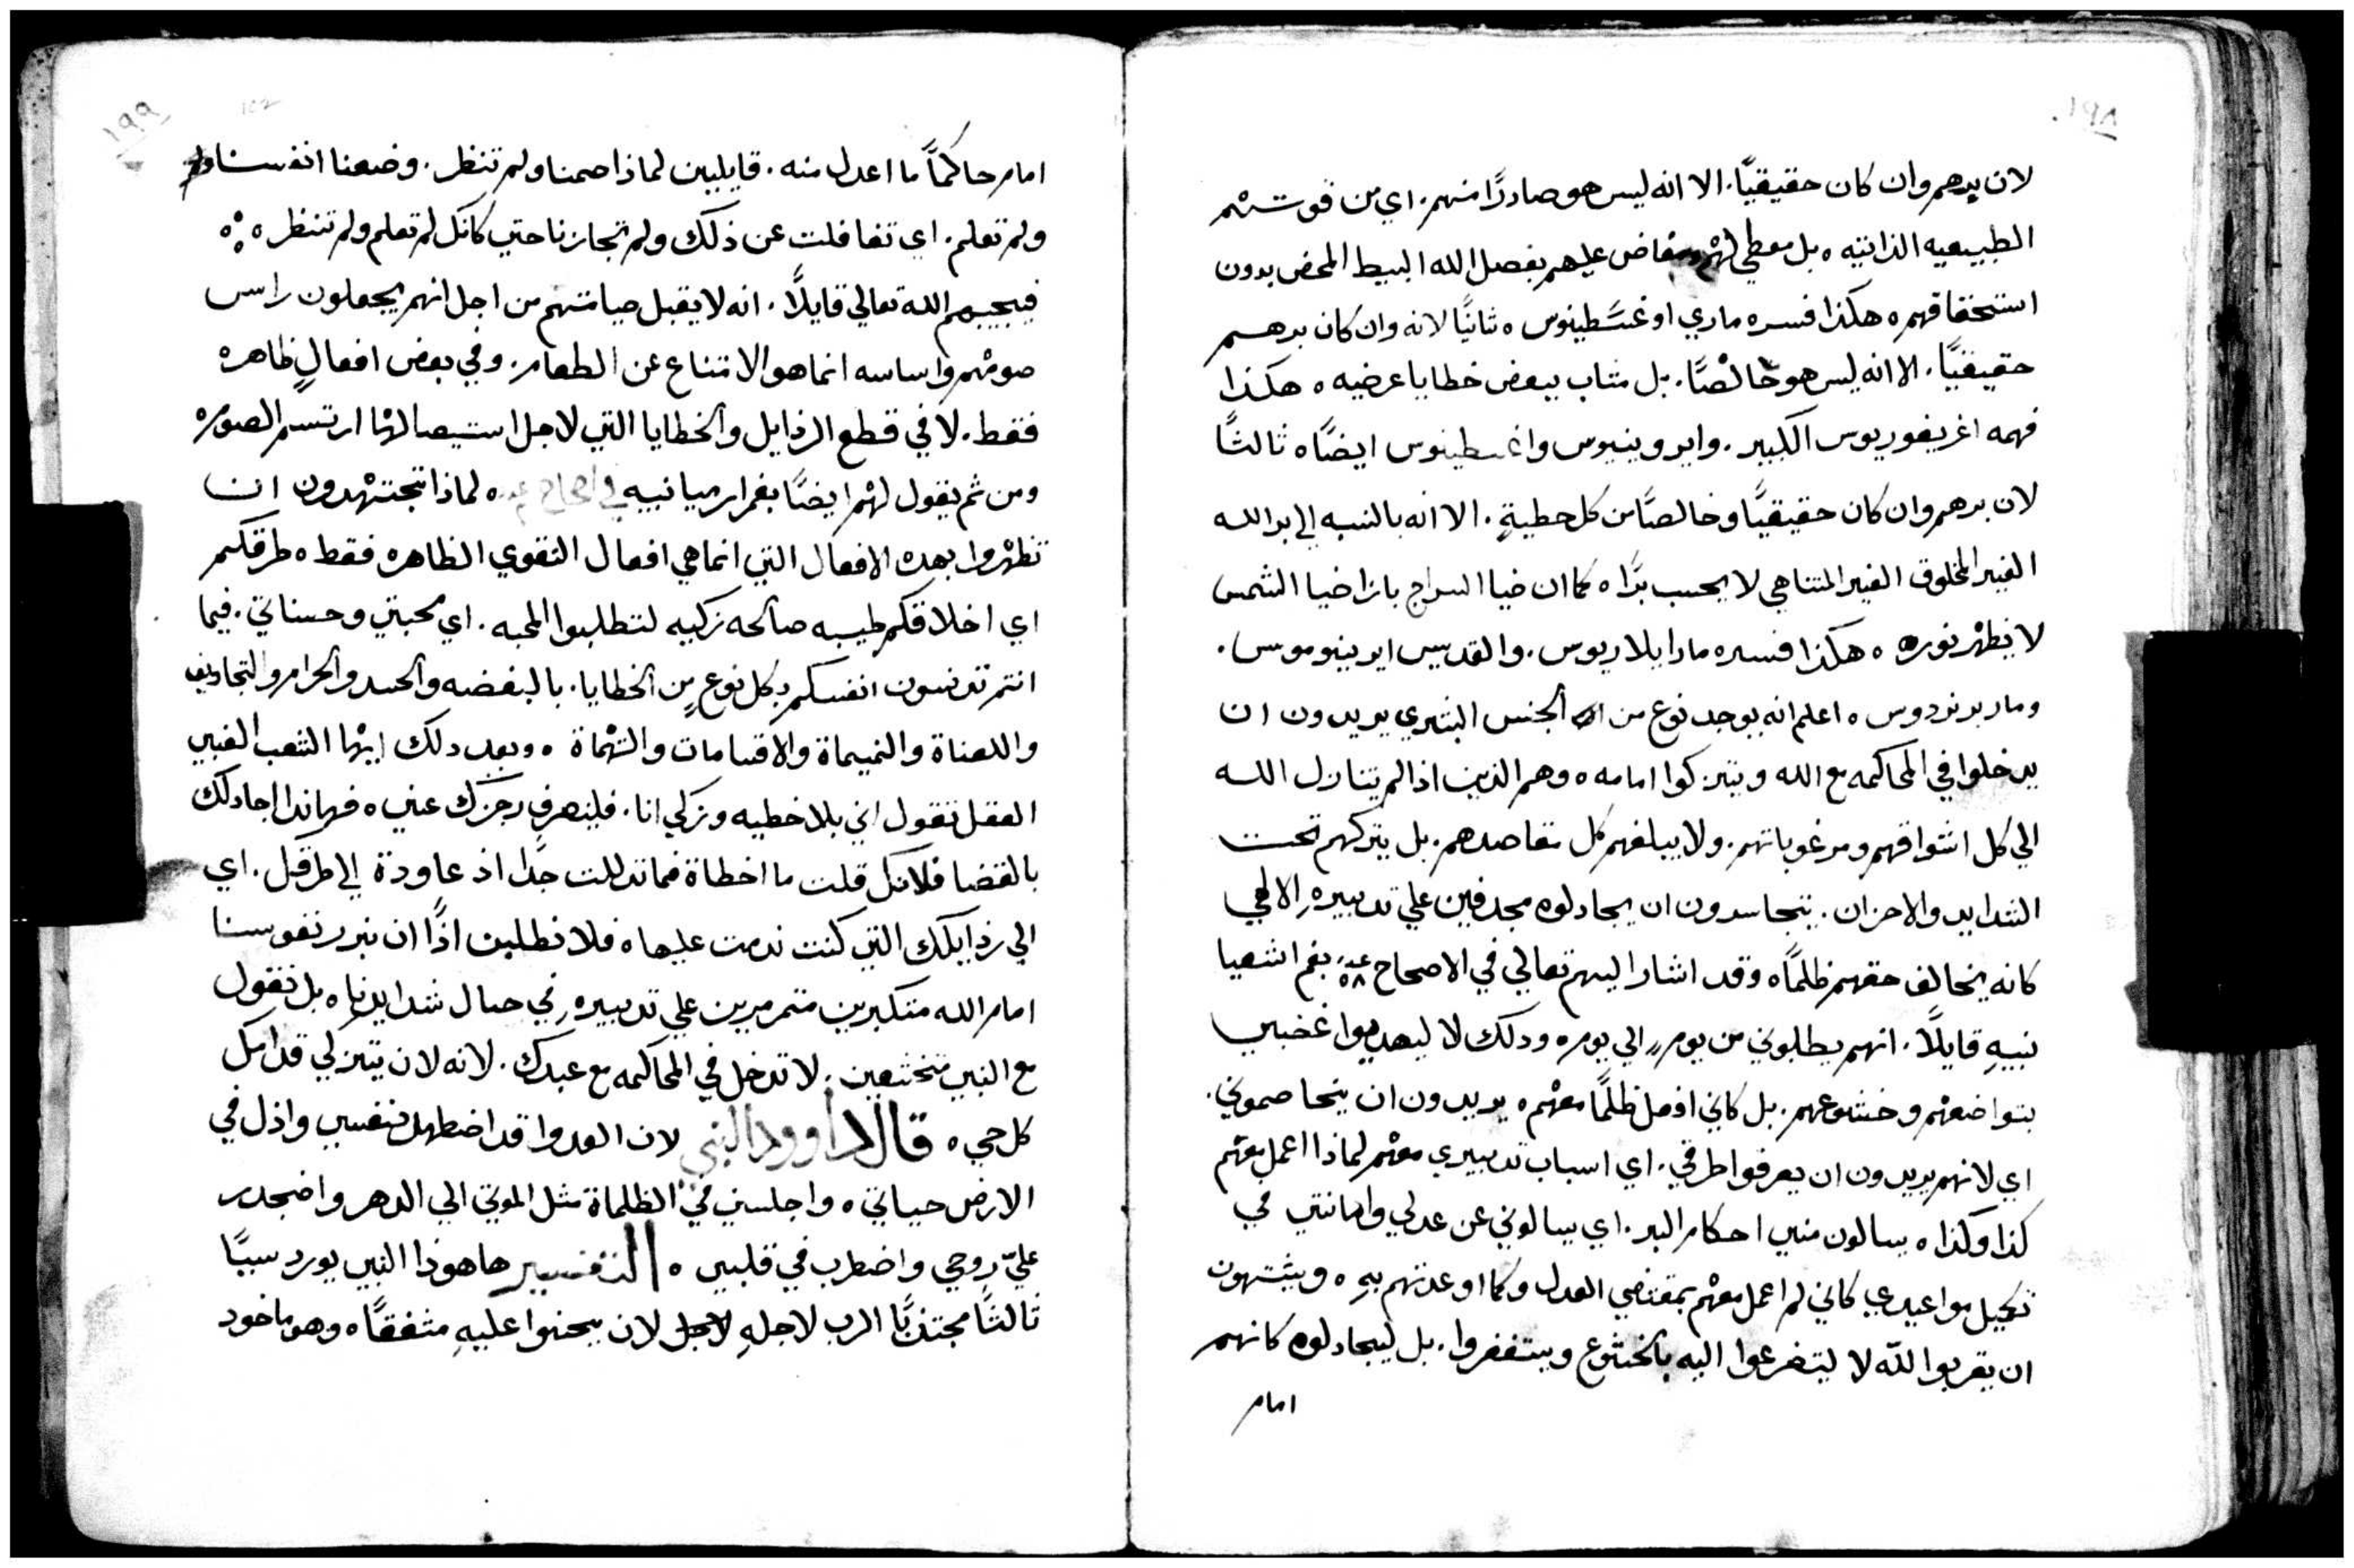 ١٩٨
لان برهم وان كان حقيقيًا. الا انه ليس هو صادرًا منهم. اي من قوتهم
الطبيعيه الذاتيه ٥ بل معطي لهم ومفاض عليهم بفضل الله البسيط المحض بدون
استحقاقهم ٥ هكذا فسره ماري اوغسطينوس ٥ ثانيًا لانه وان كان برهم
حقيقيًا. الا انه ليس هو خالصًا. بل مثاب ببعض خطايا عرضيه ٥ هكذا
فهمه اغريغوريوس الكبير. وايرونيموس واغسطينوس ايضًا ٥ ثالثًا
لان برهم وان كان حقيقيًا وخالصًا من كل خطيةٍ. الا انه بالنسبه الي بر الله
الغير المخلوق الغير المتناهي لا يحسب برًا ٥ كما ان ضيا السراج بازا ضيا الشمس
لا يظهر نوره ٥ هكذا فسره مار ايلاريوس. والقديس ايرينوموس.
ومار برنردوس ٥ اعلم انه يوجد نوع من الجنس البشري يريدون ان
يدخلوا في المحاكمه مع الله ويتزكوا امامه ٥ وهم الذين اذا لم يتنازل الله
الي كل اشواقهم ومرغوباتهم. ولا يبلغهم كل مقاصدهم. بل يتركهم تحت
الشدايد والاحزان. يتجاسرون ان يجادلوه مجدفين علي تدبيرهِ الالهي
كانه يخالف حقهم ظلمًا ٥ وقد اشار اليهم تعالي في الاصحاح ٥٨ بفم اشعيا
نبيهِ قايلًا. انهم يطلبوني من يومٍ الي يوم ٥ ودلك لا ليهديوا غضبي
بتواضعهم وخشوعهم. بل كاني افعل ظلمًا معهم ٥ يريدون ان يخاصموني.
اي لانهم يريدون ان يعرفوا طرقي. اي اسباب تدبيري معهم لماذا اعمل معهم
كذا وكذا ٥ يسالون مني احكام البر. اي يسالوني عن عدلي وامانتي في
تكميل مواعيدي كاني لم اعمل معهم بمقتضي العدل وكما اوعدتهم بهِ ٥ ويشتهون
ان يقربوا للّه لا ليتضرعوا اليه بالخشوع ويستغفروا. بل ليجادلوه كانهم
امام
١٩٩
امام حاكمًا ما اعدل منه. قايلين لماذا صمنا ولم تنظر. وضعنا انفسنا
ولم تعلم. اي تغافلت عن ذلك ولم تجازنا حتي كانك لم تعلم ولم تنظر ٥
فيجيبهم الله تعالي قايلًا. انه لا يقبل صيامتهم من اجل انهم يجعلون راس
صومهم واساسه انما هو الامتناع عن الطعام. وفي بعض افعالٍ ظاهره
فقط. لا في قطع الرذايل والخطايا التي لاجل استيصالها ارتسم الصوم ٥
ومن ثم يقول لهم ايضًا بفم ارميا نبيه في اصحاح ٥ لماذا تجتهدون ان
تظهروا بهده الافعال التي انما هي افعال التقوي الظاهره فقط ٥ طرقكم
اي اخلاقكم طيبه صالحه زكيه لتطلبوا المحبه. اي محبتي وحسناتي. فيما
انتم تدنسون انفسكم بكل نوعٍ من الخطايا. بالبغضه والحسد والحرام والتجاديف
واللعناة والنميماة والاقسامات والتهماة ٥ وبعد دلك ايها الشعب الغبي
العقل تقول اني بلا خطيه وزكي انا. فلينصرف رجزك عني ٥ فهاندا اجادلك
بالقضا فلانك قلت ما اخطاة فما تدللت جدًا اذ عاودة الي طرقك. اي
الي رذايلك التي كنت ندمت عليها ٥ فلا نطلبن اذًا ان نبرر نفوسنا
امام الله متكبرين متمرمرين علي تدبيرهِ في حال شدايدنا ٥ بل نقول
مع النبي متخشعين. لا تدخل في المحاكمه مع عبدك. لانه لان يتزكي قدامك
كل حي ٥ قال داوود النبي لان العدوا قد اضطهد نفسي واذل في
الارض حياتي ٥ واجلسني في الظلماة مثل الموتي الي الدهر واضجر
عليّ روحي واضطرب في قلبي ٥ التفسير ها هوذا النبي يورد سببًا
ثالثًا مجتذبًا الرب لاجلهِ لان يحنوا عليهِ مشفقًا ٥ وهو ماخود